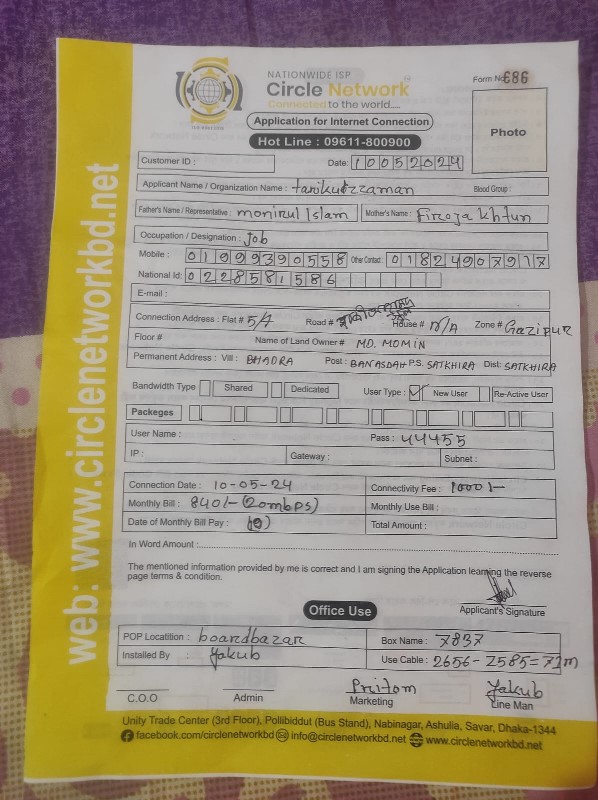 NATIONWIDE ISP
Circle Network
Connected to the world....
Form No: 686
Application for Internet Connection
Hot Line : 09611-800900
Photo
Customer ID :
Date: 10052024
Applicant Name / Organization Name : tarikuzzaman Blood Group :
Father's Name / Representative : monirul Islam Mother's Name : Firoja Khtun
Occupation / Designation : Job
Mobile : 01999390558 Other Contact : 01824907917
National Id: 0228581586
E-mail :
Connection Address : Flat # 5/A Road # House # N/A Zone # Gazipur
Floor # Name of Land Owner # MD. MOMIN
Permanent Address : Vill : BHADRA Post : BANASDAH P.S. SATKHIRA Dist: SATKHIRA
Bandwidth Type Shared Dedicated User Type : New User Re-Active User
Packeges
User Name : Pass : 44455
IP : Gateway : Subnet :
Connection Date : 10-05-24 Connectivity Fee : 1000/-
Monthly Bill : 840/- (20mbps) Monthly Use Bill :
Date of Monthly Bill Pay : (10) Total Amount :
In Word Amount :
The mentioned information provided by me is correct and I am signing the Application learning the reverse
page terms & condition.
Applicant's Signature
Office Use
POP Localition : boardbazar Box Name : 7837
Installed By : Yakub Use Cable : 2656-2585=71m
Pritom Yakub
C.O.O Admin Marketing Line Man
Unity Trade Center (3rd Floor), Pollibiddut (Bus Stand), Nabinagar, Ashulia, Savar, Dhaka-1344
facebook.com/circlenetworkbd info@circlenetworkbd.net www.circlenetworkbd.net
web: www.circlenetworkbd.net